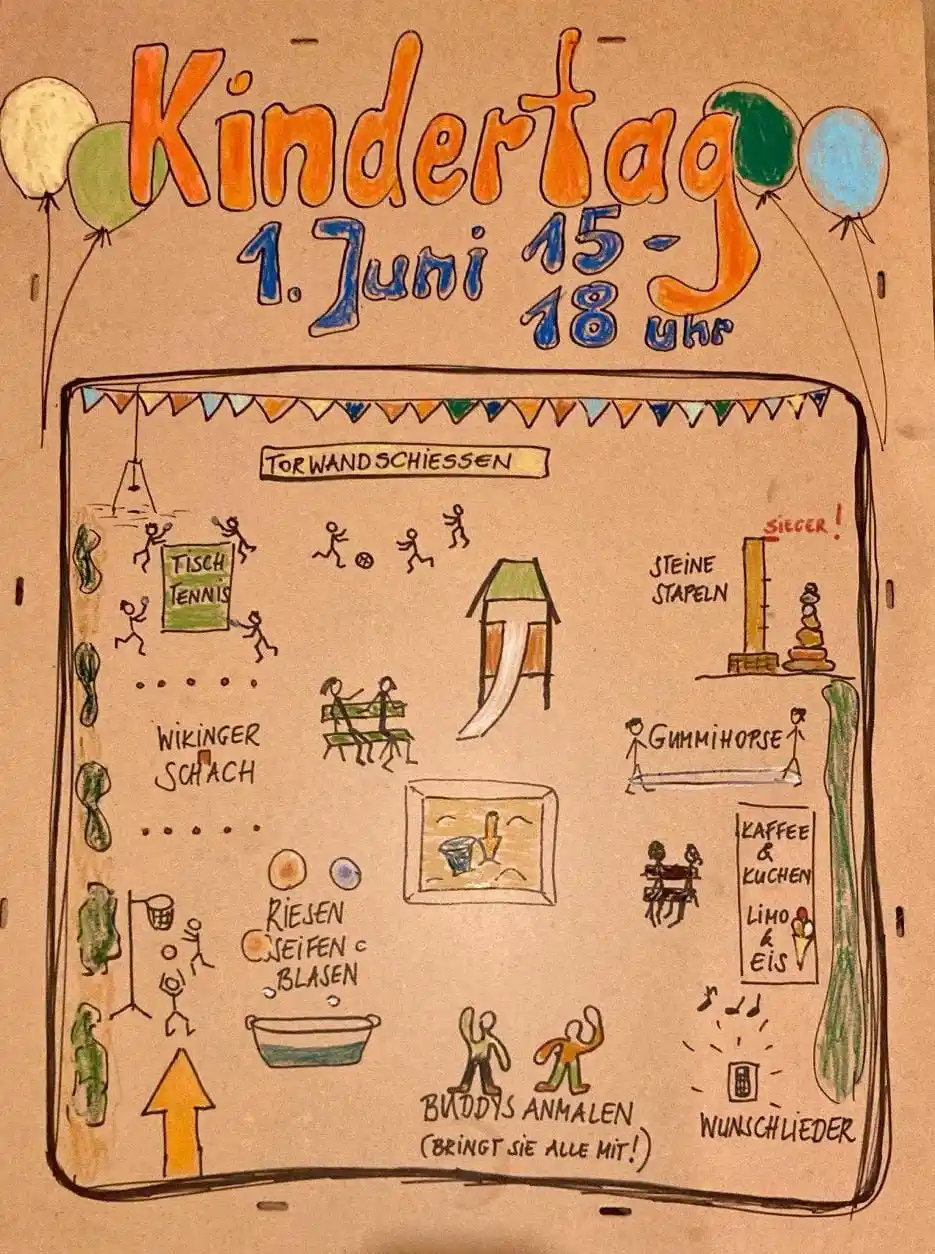 Kindertag
1. Juni 15-
18 uhr
TORWANDSCHIESSEN
TISCH
TENNIS
SIEGER!
STEINE
STAPELN
WIKINGER
SCHACH
GUMMIHOPSE
KAFFEE
&
KUCHEN
LIMO
&
EIS
RIESEN
SEIFEN
BLASEN
BUDDYS ANMALEN
(BRINGT SIE ALLE MIT!)
WUNSCHLIEDER